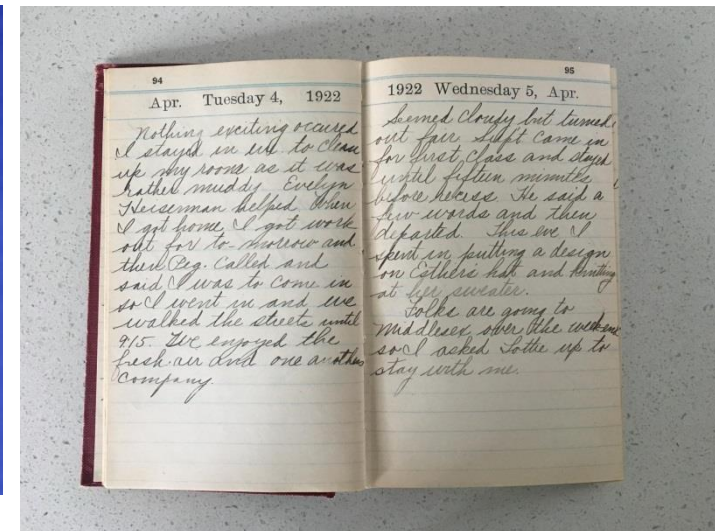 94
Apr. Tuesday 4, 1922
Nothing exciting occured
I stayed in eve to clean
up my room as it was
rather muddy. Evelyn
Heiserman helped. When
I got home, I got work
out for to-morrow and
then Peg. Called and
said I was to come in
so I went in and we
walked the streets until
9/15. We enjoyed the
fresh air and one anothers
Company.
95
1922 Wednesday 5, Apr.
Seemed cloudy but turned
out fair. Supt Came in
for first class and stayed
until fifteen minutes
before recess. He said a
few words and then
departed. This eve I
spent in putting a design
on Esthers hat and knitting
at her sweater.
Folks are going to
Middlesex over the weekend
so I asked Lottie up to
stay with me.